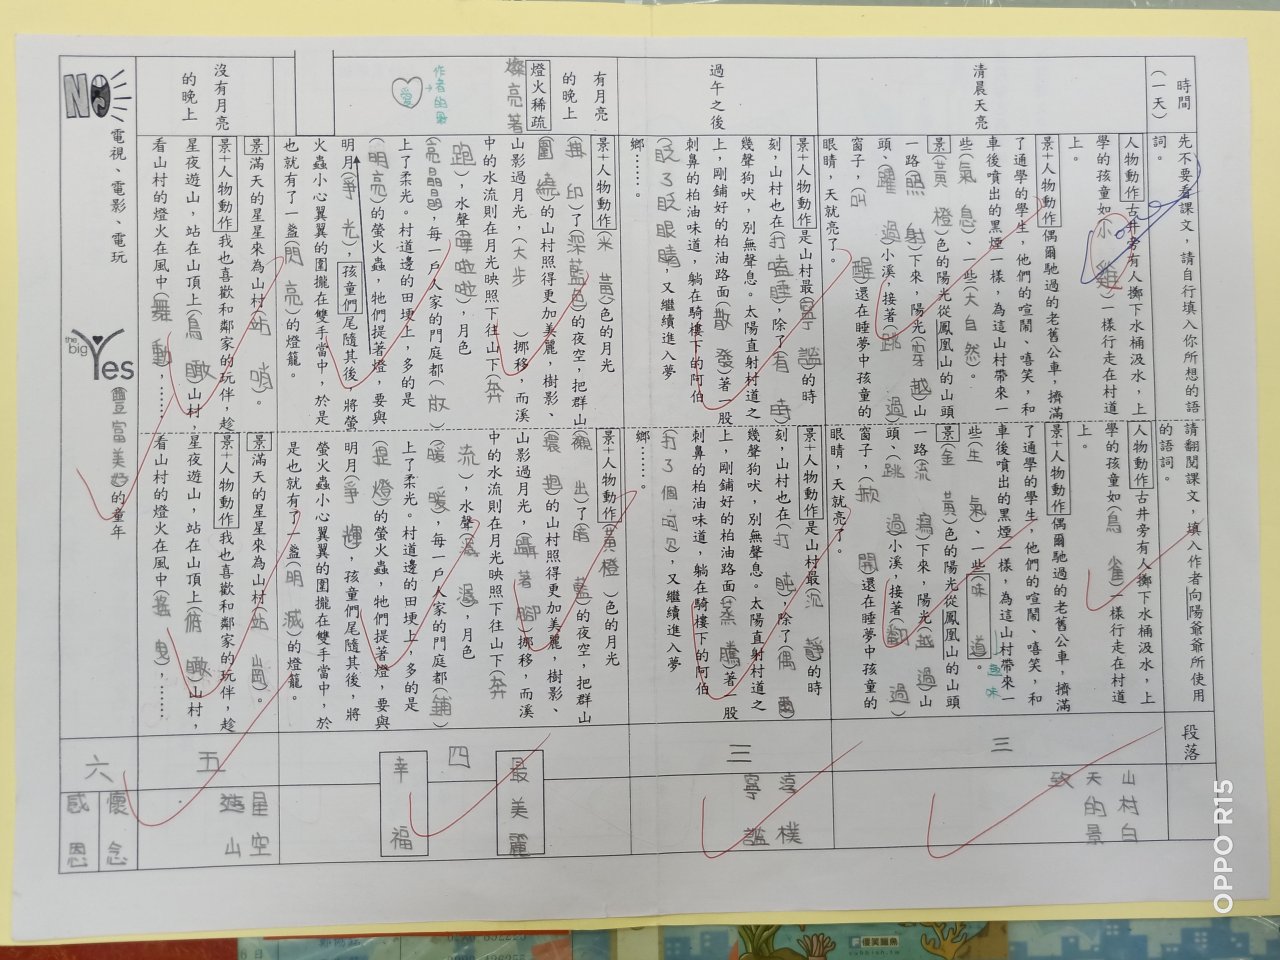 時間
(一天)
先不要看課文,請自行填入你所想的語
詞。
請翻閱課文,填入作者向陽爺爺所使用
的語詞。
段落
清晨天亮
人物動作 古井旁有人擲下水桶汲水,上
學的孩童如(小雞)一樣行走在村道
上。
景+人物動作 偶爾馳過的老舊公車,擠滿
了通學的學生,他們的喧鬧、嘻笑,和
車後噴出的黑煙一樣,為這山村帶來一
些(氣息)、一些(大自然)。
景(黃橙)色的陽光從鳳凰山的山頭
一路(照射)下來,陽光(穿越)山
頭、(躍過)小溪,接著(跳過)
窗子,(叫醒)還在睡夢中孩童的
眼睛,天就亮了。
人物動作 古井旁有人擲下水桶汲水,上
學的孩童如(鳥雀)一樣行走在村道
上。
景+人物動作 偶爾馳過的老舊公車,擠滿
了通學的學生,他們的喧鬧、嘻笑,和
車後噴出的黑煙一樣,為這山村帶來一
些(生氣)、一些(味道)。
趣味
景(金黃)色的陽光從鳳凰山的山頭
一路(流瀉)下來,陽光(越過)山
頭,(跳過)小溪,接著(翻過)
窗子,(掀開)還在睡夢中孩童的
眼睛,天就亮了。
三
山村白
天的景
致
過午之後
景+人物動作 是山村最(寧謐)的時
刻,山村也在(打瞌睡),除了(有時)
幾聲狗吠,別無聲息。太陽直射村道之
上,剛鋪好的柏油路面(散發)著一股
刺鼻的柏油味道,躺在騎樓下的阿伯
(眨了眨眼睛),又繼續進入夢
鄉……。
景+人物動作 是山村最(沉靜)的時
刻,山村也在(打盹),除了(偶爾)
幾聲狗吠,別無聲息。太陽直射村道之
上,剛鋪好的柏油路面(蒸騰)著一股
刺鼻的柏油味道,躺在騎樓下的阿伯
(打了個呵欠),又繼續進入夢
鄉……。
三
淳樸
寧謐
有月亮
的晚上
燈火稀疏
燦亮著
作者的家
愛
景+人物動作 米黃)色的月光
印)了(深藍色)的夜空,把群山
(圍繞)的山村照得更加美麗,樹影、
山影過月光,(大步)挪移,而溪
中的水流則在月光映照下往山下(奔
跑),水聲(嘩啦啦),月色
(亮晶晶,每一戶人家的門庭都(放)
上了柔光。村道邊的田埂上,多的是
(明亮)的螢火蟲,牠們提著燈,要與
明月(爭光),孩童們尾隨其後,將螢
火蟲小心翼翼的圍攏在雙手當中,於是
也就有了一盞(閃亮)的燈籠。
景+人物動作(黃橙)色的月光
(襯出)了(暗藍)的夜空,把群山
(環抱)的山村照得更加美麗,樹影、
山影過月光,(躡著腳)挪移,而溪
中的水流則在月光映照下往山下(奔
流),水聲(潺潺),月色
(暖暖),每一戶人家的門庭都(鋪)
上了柔光。村道邊的田埂上,多的是
(提燈)的螢火蟲,牠們提著燈,要與
明月(爭輝),孩童們尾隨其後,將
螢火蟲小心翼翼的圍攏在雙手當中,於
是也就有了一盞(明滅)的燈籠。
四
最美麗
幸福
沒有月亮
的晚上
景 滿天的星星來為山村(站哨)。
景+人物動作 我也喜歡和鄰家的玩伴,趁
星夜遊山,站在山頂上(鳥瞰)山村,
看山村的燈火在風中(舞動),……
景 滿天的星星來為山村(站崗)。
景+人物動作 我也喜歡和鄰家的玩伴,趁
星夜遊山,站在山頂上(俯瞰)山村,
看山村的燈火在風中(搖曳),……
五
星空
遊山
NO
電視、電影、電玩
the big Yes
豐富美好的童年
六
懷念
感恩
OPPO R15